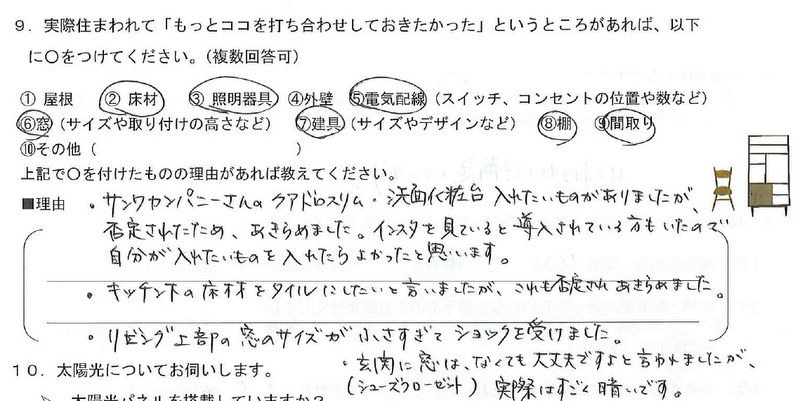 ９．実際住まわれて「もっとココを打ち合わせしておきたかった」というところがあれば、以下
に〇をつけてください。（複数回答可）
① 屋根 ② 床材 ③ 照明器具 ④外壁 ⑤電気配線（スイッチ、コンセントの位置や数など）
⑥窓（サイズや取り付けの高さなど） ⑦建具（サイズやデザインなど） ⑧棚 ⑨間取り
⑩その他（ ）
上記で〇を付けたものの理由があれば教えてください。
■理由 ・サンワカンパニーさんの クアドロスリム・洗面化粧台 入れたいものがありましたが、
否定されたため、あきらめました。インスタを見ていると導入されている方もいたので
自分が入れたいものを入れたらよかったと思います。
・キッチン下の床材をタイルにしたいと言いましたが、これも否定され あきらめました。
・リビング上部の窓のサイズが小さすぎて ショックを受けました。
・玄関に窓は、なくても大丈夫ですよと言われましたが、
１０．太陽光についてお伺いします。
(シューズクローゼット) 実際はすごく暗いです。
太陽光パネルを搭載していますか？